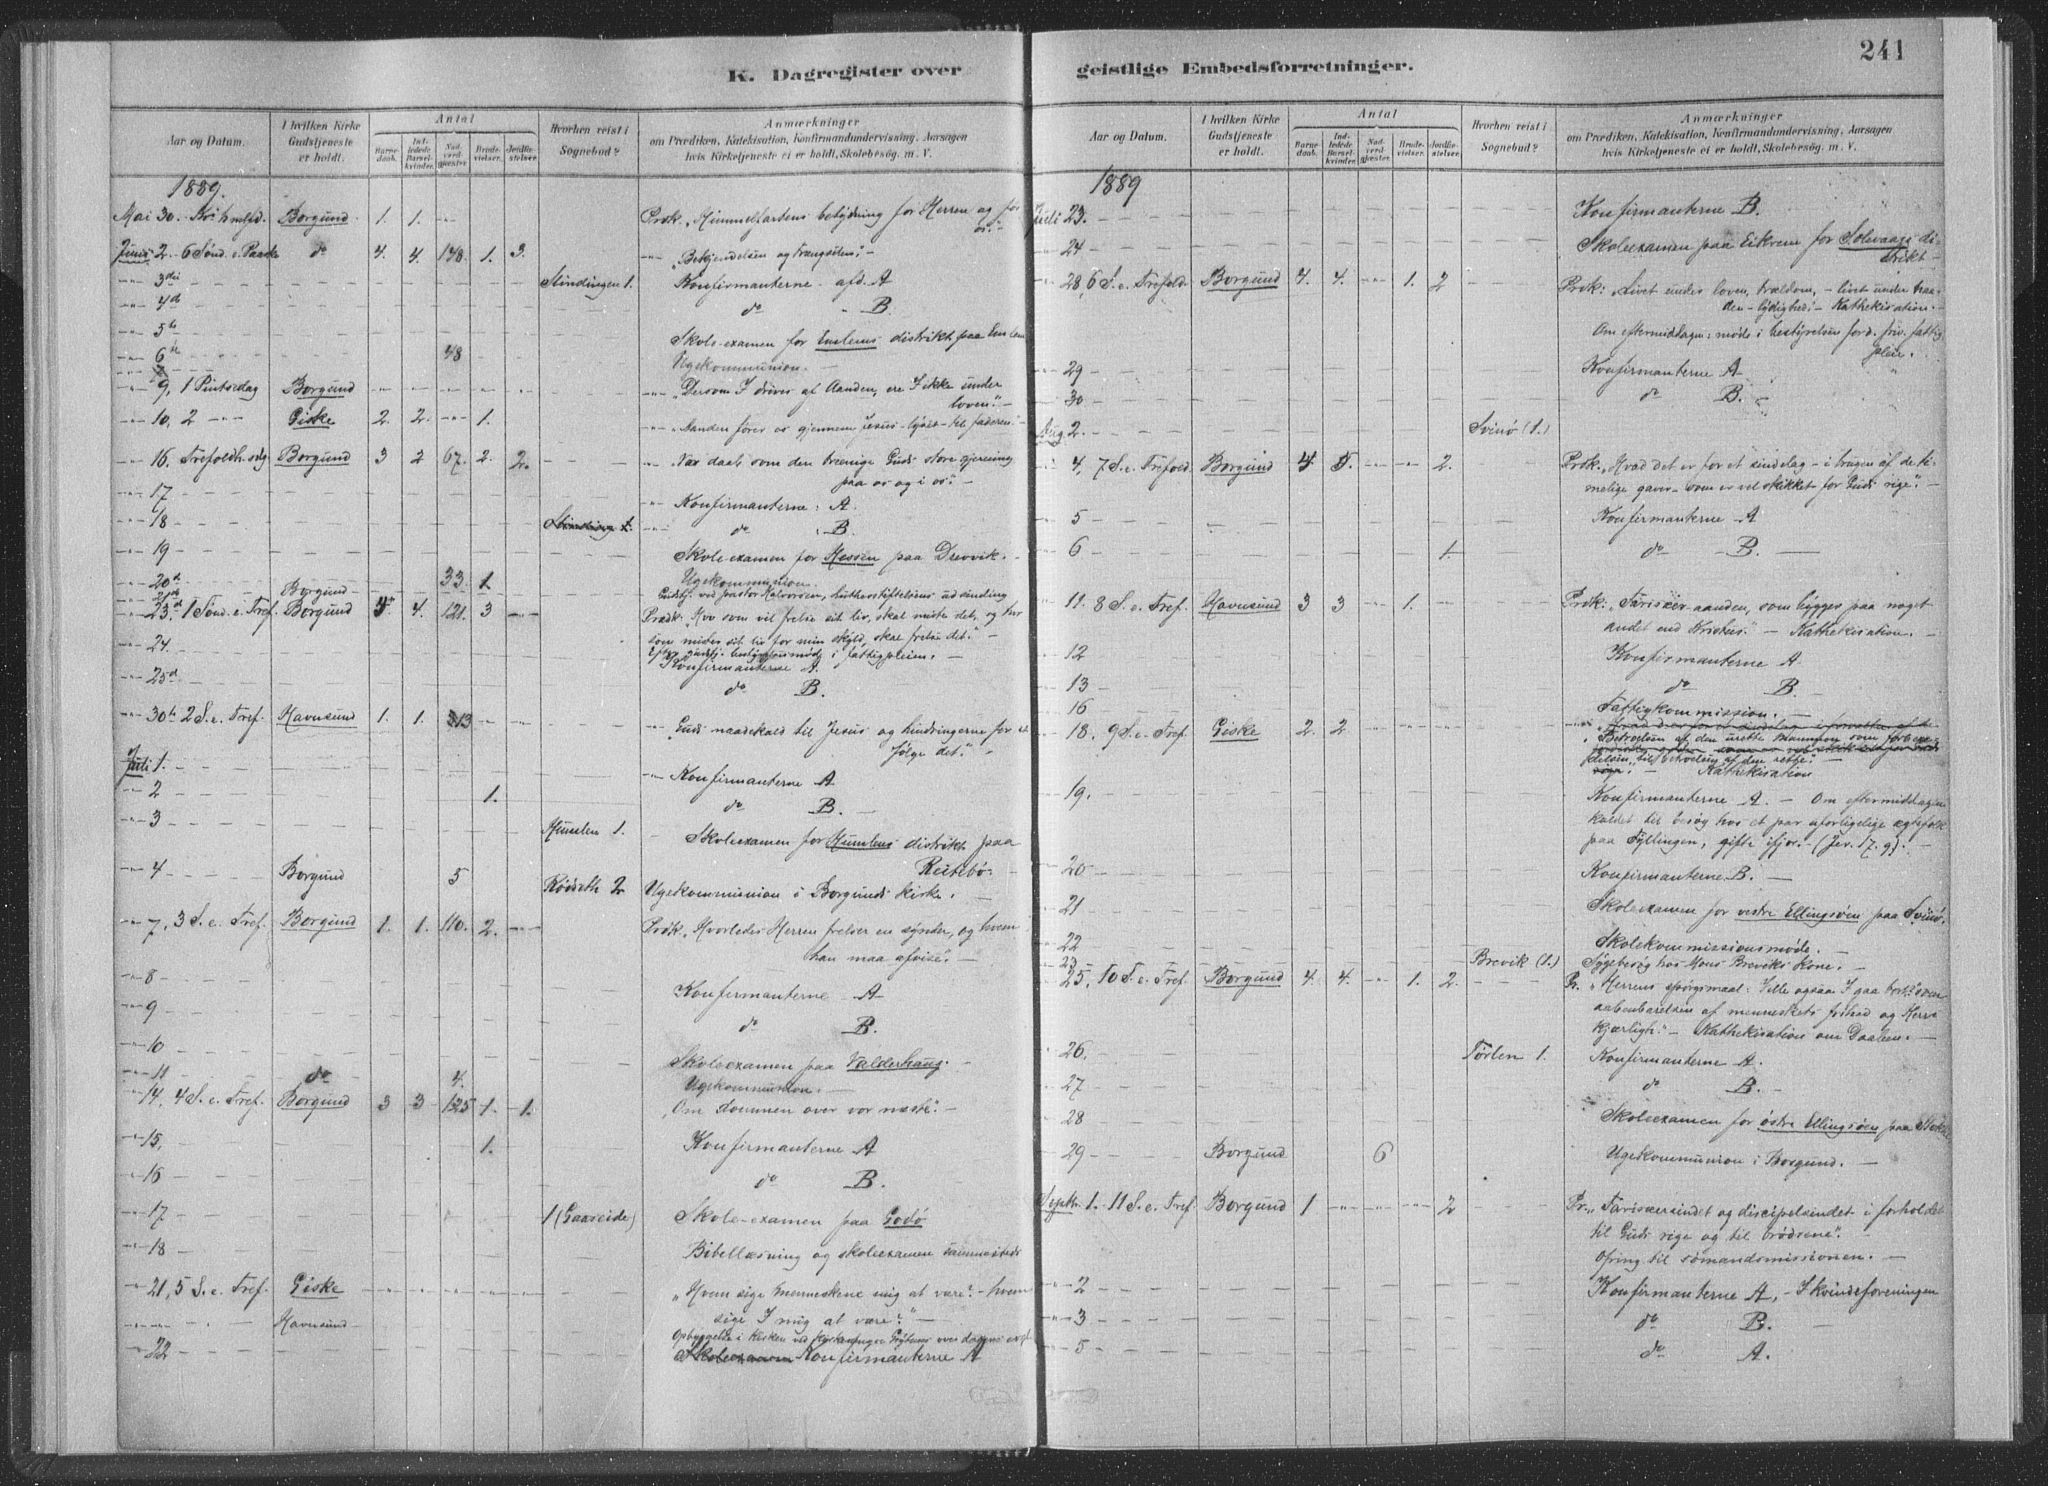 K. Dagregister over
Aar og Datum.
I hvilken Kirke Gudstjeneste er holdt.
Antal
Barnedaab.
Indledede Barselkvinder.
Nadverdgjæster.
Brudevielser.
Jordfæstelser.
Hvorhen reist i Sognebud?
Anmærkninger
om Prædiken, Katekisation, Konfirmandundervisning, Aarsagen
hvis Kirketjeneste ei er holdt, Skolebesög m. V.
1889.
Mai 30. Kri. hmlfd. Borgund 1. 1. Prdk. „Himmelfartens betydning for Herren og for os."
Juni 2. 6 Sønd. e. Paaske do 4. 4. 148. 1. 3. „Bekjendelsen og trængselen."
3die Slindingen 1. Konfirmanterne afd. A
4d do B.
5te Skole-examen for Emlems distrikt paa Emlem
6te 48 Ugekommunion.
9, 1 Pintsedag Borgund „Dersom I drives af Aanden, ere I ikke under
loven."
10, 2 Giske 2. 2. 1. „Aanden fører os gjennem Jesus-lyset til faderen."
16. Trefoldh. sdg Borgund 3 2 67. 2. 2. „Vor daab, som den treenige Guds store gjerning
paa os og i os."
17 Konfirmanterne: A.
18 do B.
19 Skoleexamen for Hessen paa Drevvik.
20d 33. 1. Ugekommunion.
21de Borgund Gudstj. ved pastor Halvorsen, Lutherstiftelsens udsending
23d. 1 Sønd. e. Tref. Borgund 4. 121. 3 Prædk: „Hvo som vil frelse sit liv, skal miste det, og hvo
som mister sit liv for min skyld, skal frelse det."
24. Efter gudstj. bestyrelsesmøde i fattigpleien.
Konfirmanterne A.
25d do B.
30te 2 S. e. Tref. Havnsund 1. 1. „Guds naadekald til Jesus og hindringerne for at
følge det."
Juli 1. Konfirmanterne A
2 1. do B.
3 Humlen 1. Skoleexamen for Humlens distrikt paa
Reitebø.
4 Borgund 5 Rødseth 2 Ugekommunion i Borgunds kirke.
7, 3 S. e. Tref. Borgund 1. 1. 110. 2. Prdk „Hvorledes Herren frelser en synder, og hvem
han maa afvise."
8 Konfirmanterne A
9 do B.
10 Skoleexamen paa Valderhaug.
11 do 4. Ugekommunion.
14, 4 S. e. Tref. Borgund 3 3 125 1. 1. „Om dommen over vor næste."
15, 1. Konfirmanterne A
16 do B.
17 1 (Gaaseide) Skole-examen paa Godø
18 Bibellæsning og skoleexamen sammesteds
21, 5 S. e. Tref. Giske „Hvem sige menneskene mig at være? - hvem
sige I mig at være?"
Havnsund Opbyggelse i kirken ved
22 Skoleexamen Konfirmanterne A
geistlige Embedsforretninger.
241
Aar og Datum.
I hvilken Kirke Gudstjeneste er holdt.
Antal
Barnedaab.
Indledede Barselkvinder.
Nadverdgjæster.
Brudevielser.
Jordfæstelser.
Hvorhen reist i Sognebud?
Anmærkninger
om Prædiken, Katekisation, Konfirmandundervisning, Aarsagen
hvis Kirketjeneste ei er holdt, Skolebesög m. V.
1889
Juli 23. Konfirmanterne B.
24 Skoleexamen paa Eikrem for Solevaags distrikt
28, 6 S. e. Trefold. Borgund 4. 4. 1. 2 Prdk: „Livet under loven, trældom, - livet under naaden - lydighed." - Kathekisation.
Om eftermiddagen: møde i bestyrelsen for d. friv. fattigpleie.
29 Konfirmanterne A
30 do B.
Aug. 2. Svinø (1.)
4, 7 S. e. Trefold. Borgund 4. 5. 2. Prdk. „Hvad det er for et sindelag - i brugen af de timelige gaver - som er vel skikket for Guds rige."
5 Konfirmanterne A
6 1. do B.
11. 8 S. e. Tref. Havnsund 3 3 1. Prdk: „Farisæer-aanden, som bygges paa noget
andet end Kristus." - Kathekisation.
12 Konfirmanterne A
13 do B.
16 Fattigkommission.
18. 9 S. e. Tref. Giske 2. 2
„Betroelsen af den urette Mammon som forberedelsen til betroelsen af den rette."
Kathekisation
19. Konfirmanterne A. - Om eftermiddagen
kaldet til besøg hos et par uforligelige egtefolk
paa Tyllingen, gifte ifjor. - (Jer. 17. 9).
20 Konfirmanterne B.
21 Skoleexamen for vestre Ellingsøen paa Svinø.
22 Skolekommissionsmøde.
23 Brevik (1.) Sygebesøg hos Mons Breviks kone.
25, 10 S. e. Tref. Borgund 4. 4. 1. 2. Pr. „Herrens spørgsmaal: Ville ogsaa I gaa bort? som
aabenbarelsen af menneskets frihed og Herrens
kjærligh." - Kathekisation om Daaben.
26. Tørlen 1. Konfirmanterne A.
27 do B.
28 Skoleexamen for østre Ellingsøen paa
29 Borgund 6 Ugekommunion i Borgund.
Septbr. 1. 11 S. e. Tref. Borgund 1 2 Pr. „Farisæersindet og discipelsindet i forholdet
til Guds rige og til brødrene."
Ofring til sømandsmissionen.
2 Konfirmanterne A. - I kvindeforeningen
3 do B.
5 do A.